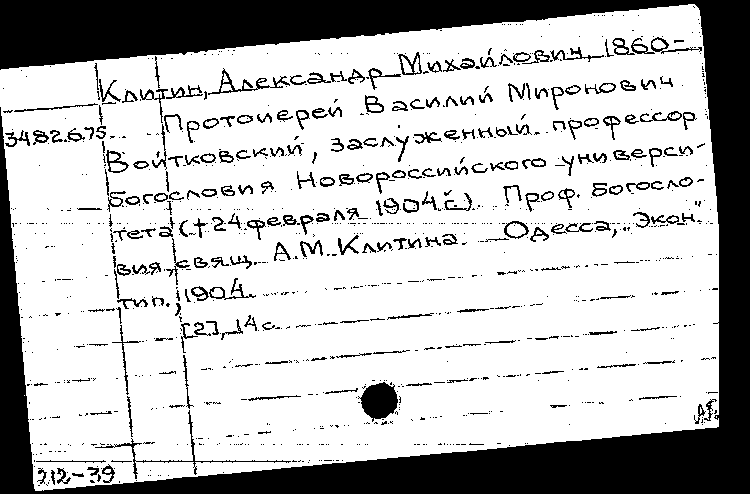 Клитин, Александр Михайлович, 1860-
3482.6.75. Протоиерей Василий Миронович
Войтковский, заслуженный профессор
богословия Новороссийского универси-
тета († 24 февраля 1904 г.). Проф. богосло-
вия, свящ. А.М. Клитина. Одесса, "Экон."
тип., 1904.
[2], 14 с.
212-39